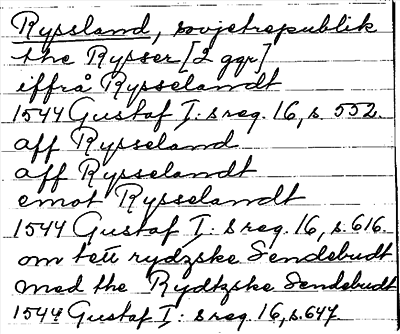 Ryssland, sovjetrepublik
the Rysser [2 ggr]
iffrå Rysselandt
1544 Gustaf I: s reg. 16, s. 552.
aff Rysseland
aff Rysselandt
emot Rysselandt
1544 Gustaf I: s reg. 16, s. 616.
om tett rydzske Sendebudt
med the Rydtzske Sendebudt
1544 Gustaf I: s reg. 16, s. 647.